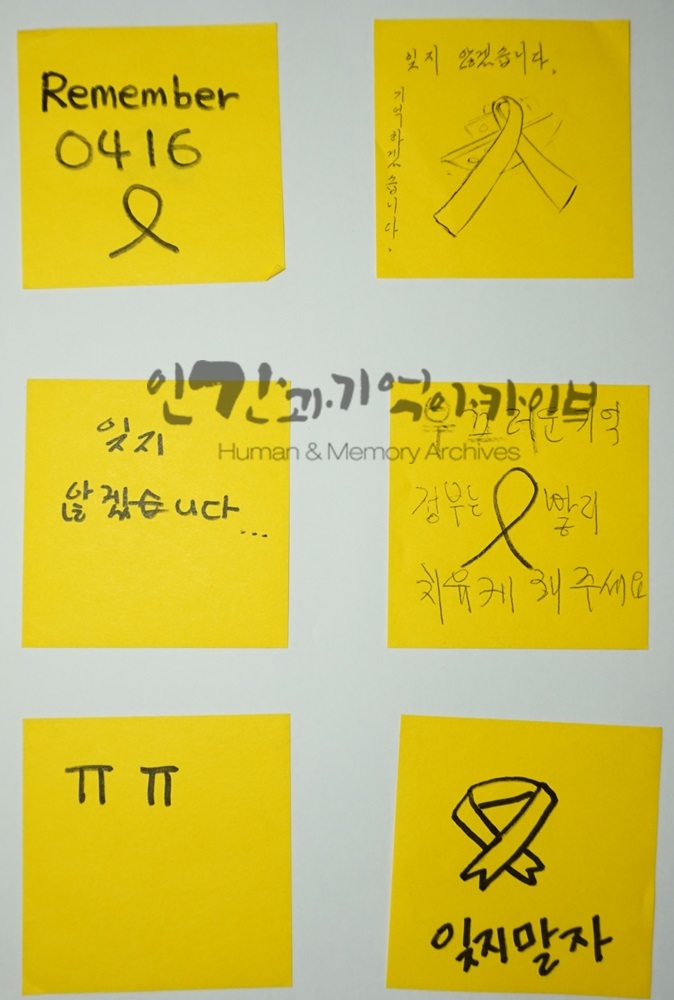 Remember
0416
잊지 않겠습니다.
기억하겠습니다.
인간과.기억아카이브
Human & Memory Archives
잊지
않겠습니다...
부끄러운 기억
정부는 빨리
치유케 해 주세요
ㅠ ㅠ
잊지말자